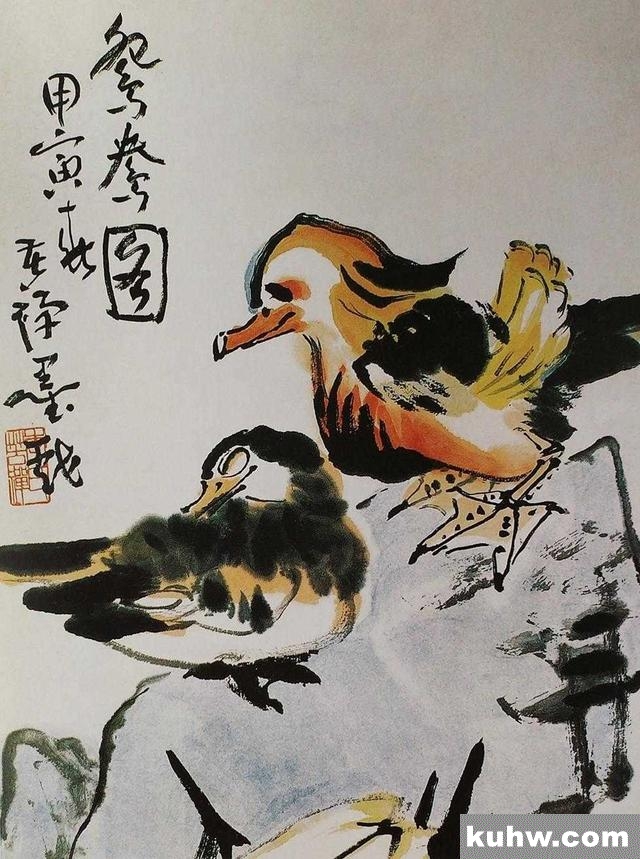 鸳鸯图
甲寅秋
苦禅墨戏
kuhw.com